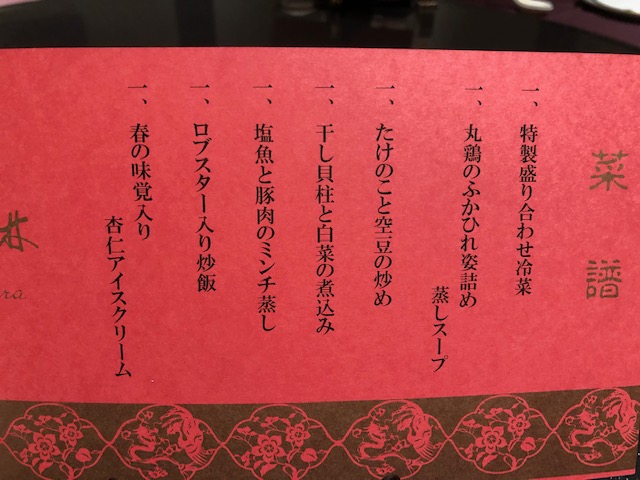 菜譜
一、特製盛り合わせ冷菜
一、丸鶏のふかひれ姿詰め
蒸しスープ
一、たけのこと空豆の炒め
一、干し貝柱と白菜の煮込み
一、塩魚と豚肉のミンチ蒸し
一、ロブスター入り炒飯
一、春の味覚入り
杏仁アイスクリーム